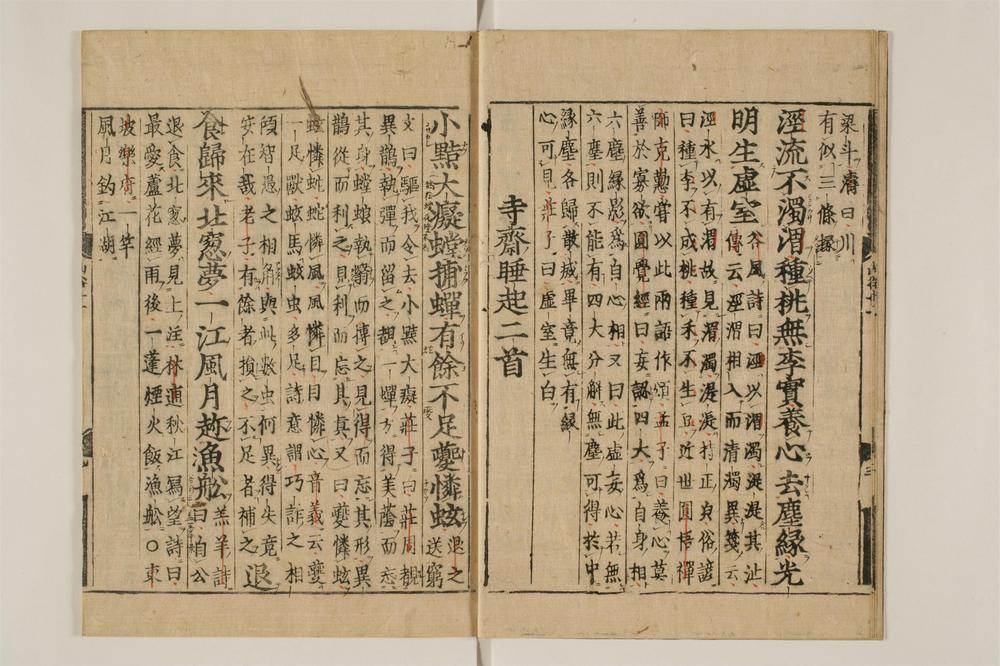 梁斗濟曰川
有似三條握
涇流不濁渭種桃無李實養心去塵緣光
明生虛室谷風詩曰涇以渭濁湜湜其沚
傳云涇渭相入而清濁異箋云
涇水以有渭故見渭濁湜湜持正皃俗諺
曰種李不成桃種禾不生豆近世圓悟禪
師克勤嘗以此兩語作頌孟子曰養心莫
善於寡欲圓覺經曰妄認四大為自身相
六塵緣影為自心相又曰此虛妄心若無
六塵則不能有四大分解無塵可得於中
緣塵各歸散滅畢竟無有緣
心可見莊子曰虛室生白
寺齋睡起二首
小黠大癡螳捕蟬有餘不足夔憐蚿退之
送窮
文曰驅我令去小黠大癡莊子曰莊周覩
異鵲執彈而留之覩一蟬方得美蔭而忘
其身螳蜋執翳而搏之見得而忘其形異
鵲從而利之見利而忘其真又曰夔憐蚿
蚿憐蛇蛇憐風風憐目目憐心音義云夔
一足獸蚿馬蚿虫多足詩意謂巧詐之相
傾智愚之相角與此數虫何異得失竟
安在哉老子有餘者損之不足者補之
退
食歸來北窻夢一江風月趂漁舩羔羊詩
曰自公
退食北窻夢見上注林逋秋江寫望詩曰
最愛蘆花經雨後一蓬煙火飯漁舩〇東
坡樂府一竿
風月釣江湖